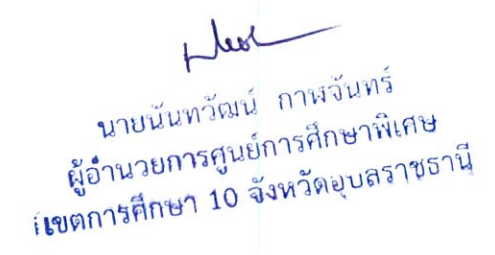 นายนันทวัฒน์ กาฬจันทร์
ผู้อำนวยการศูนย์การศึกษาพิเศษ
เขตการศึกษา 10 จังหวัดอุบลราชธานี